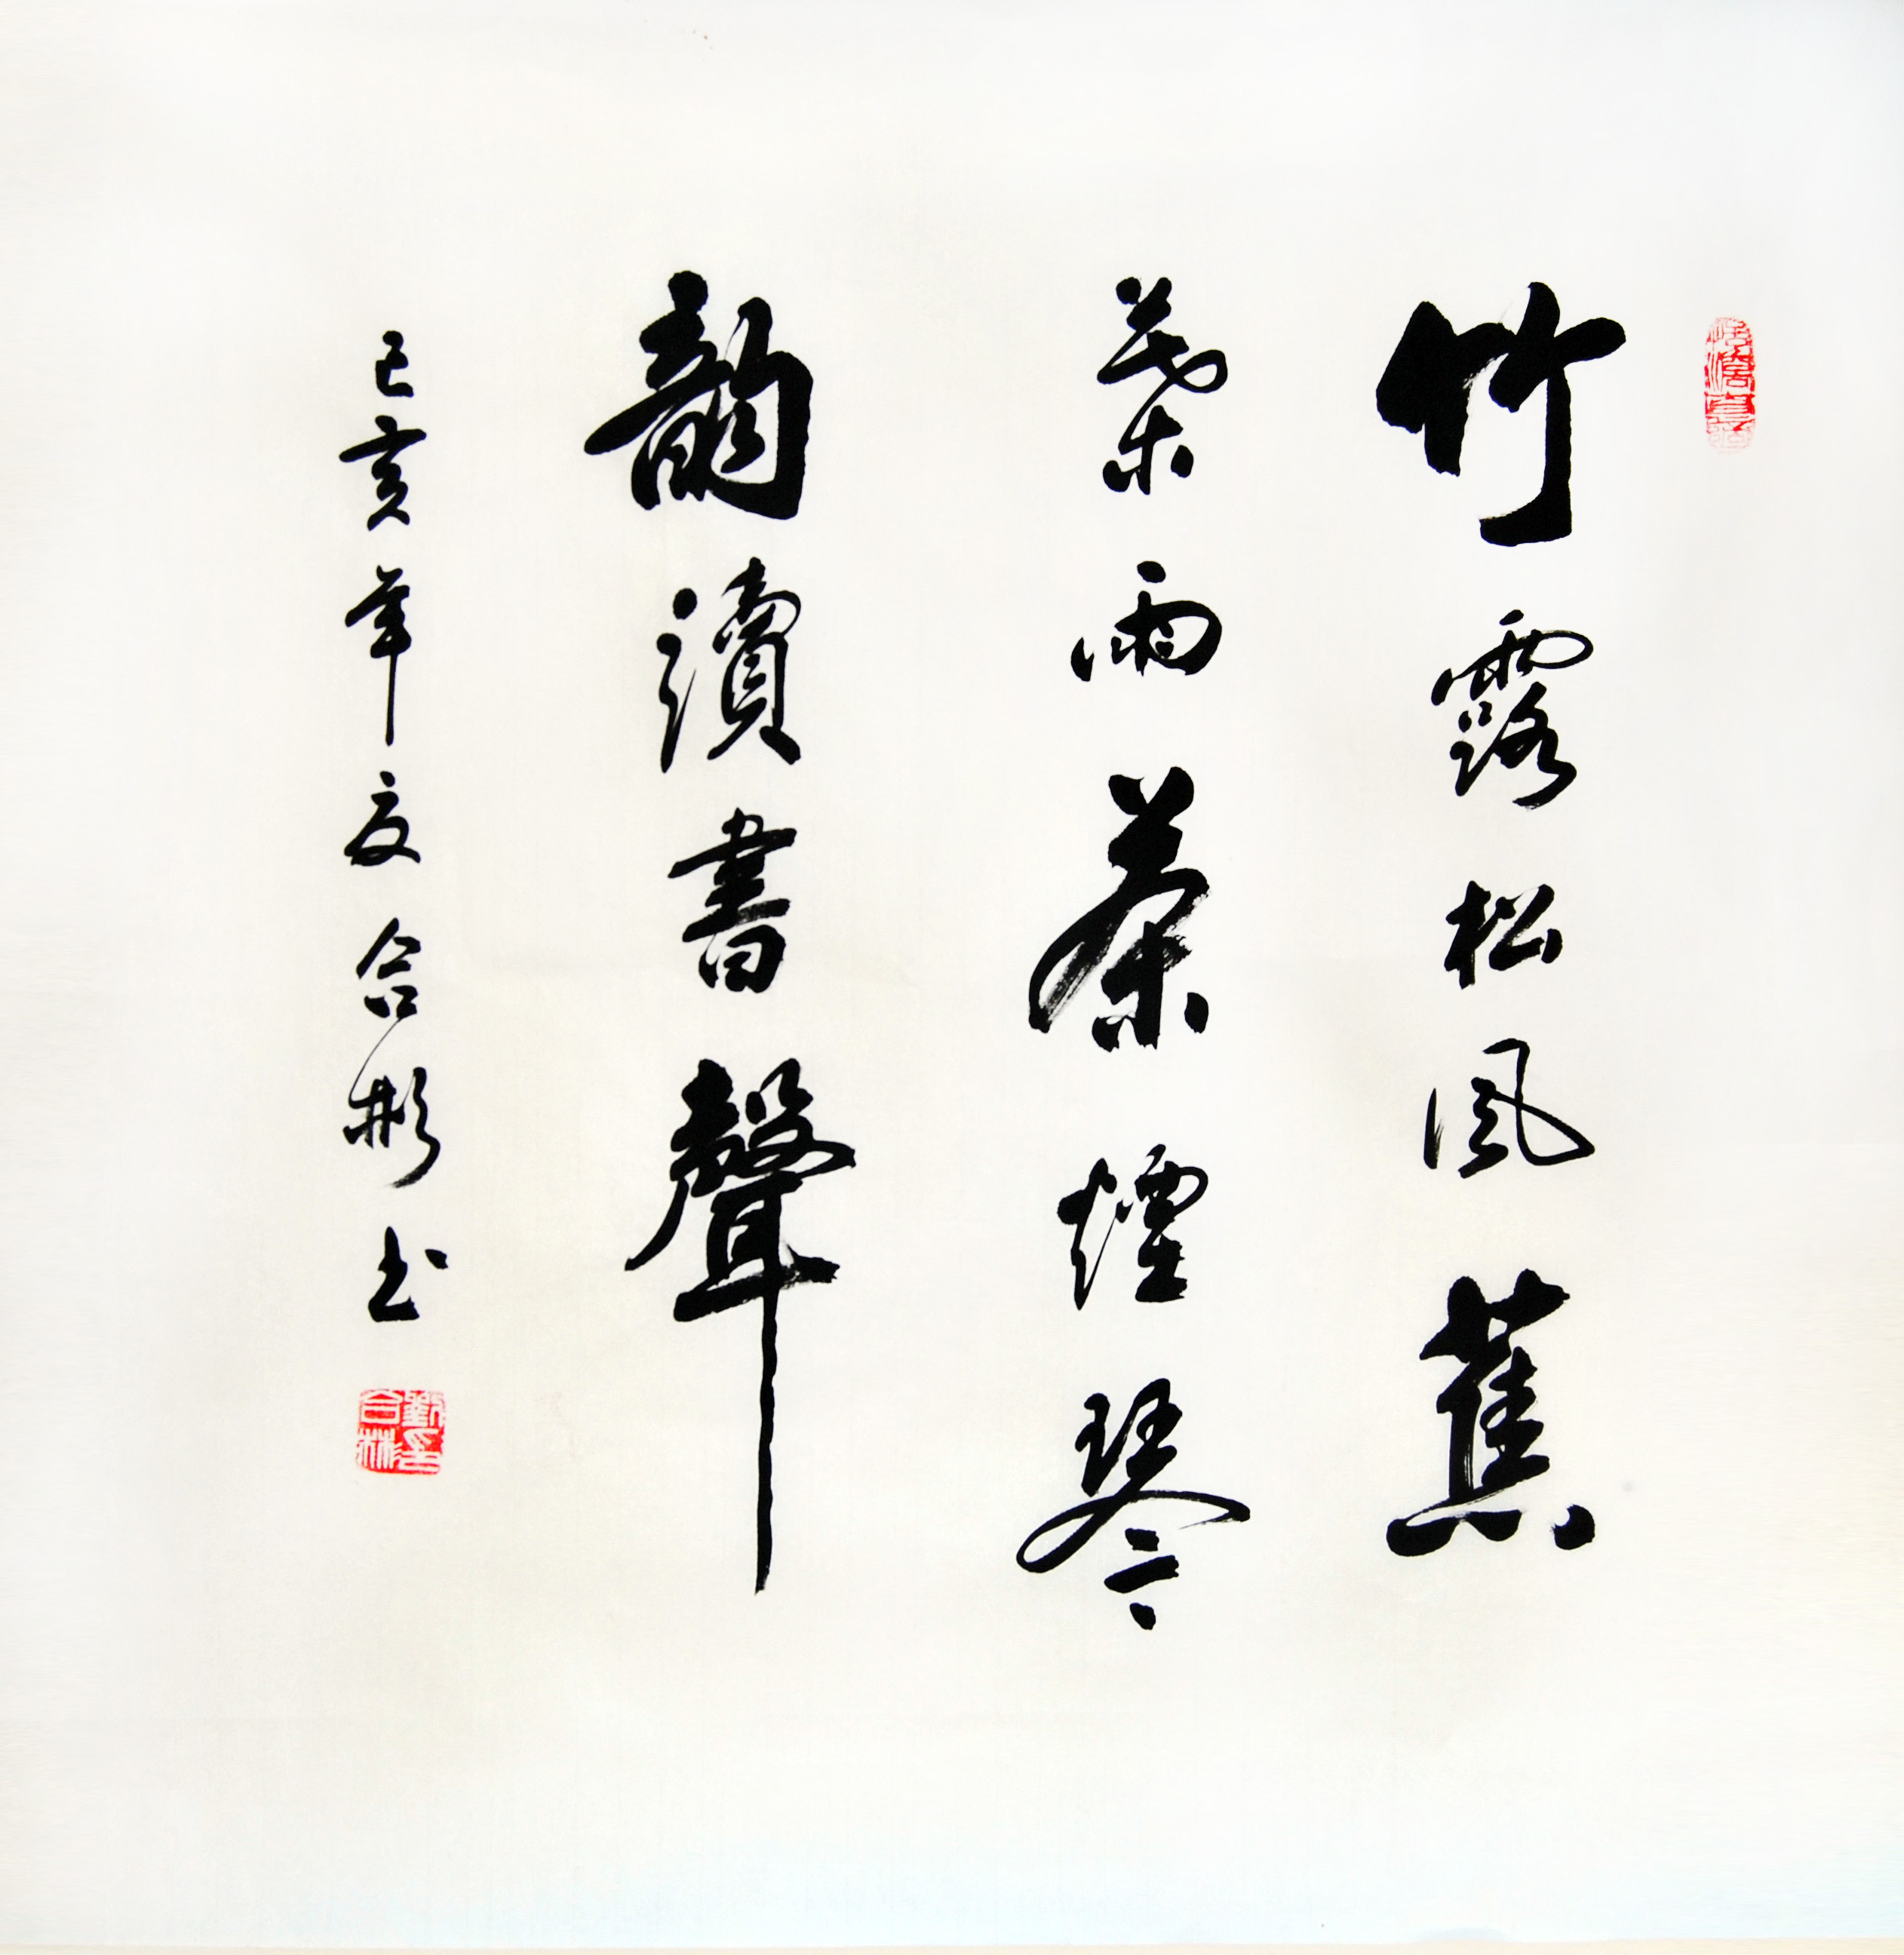 竹露松風蕉
葉雨茶煙琴
韻讀書聲
己亥年夏合彬书